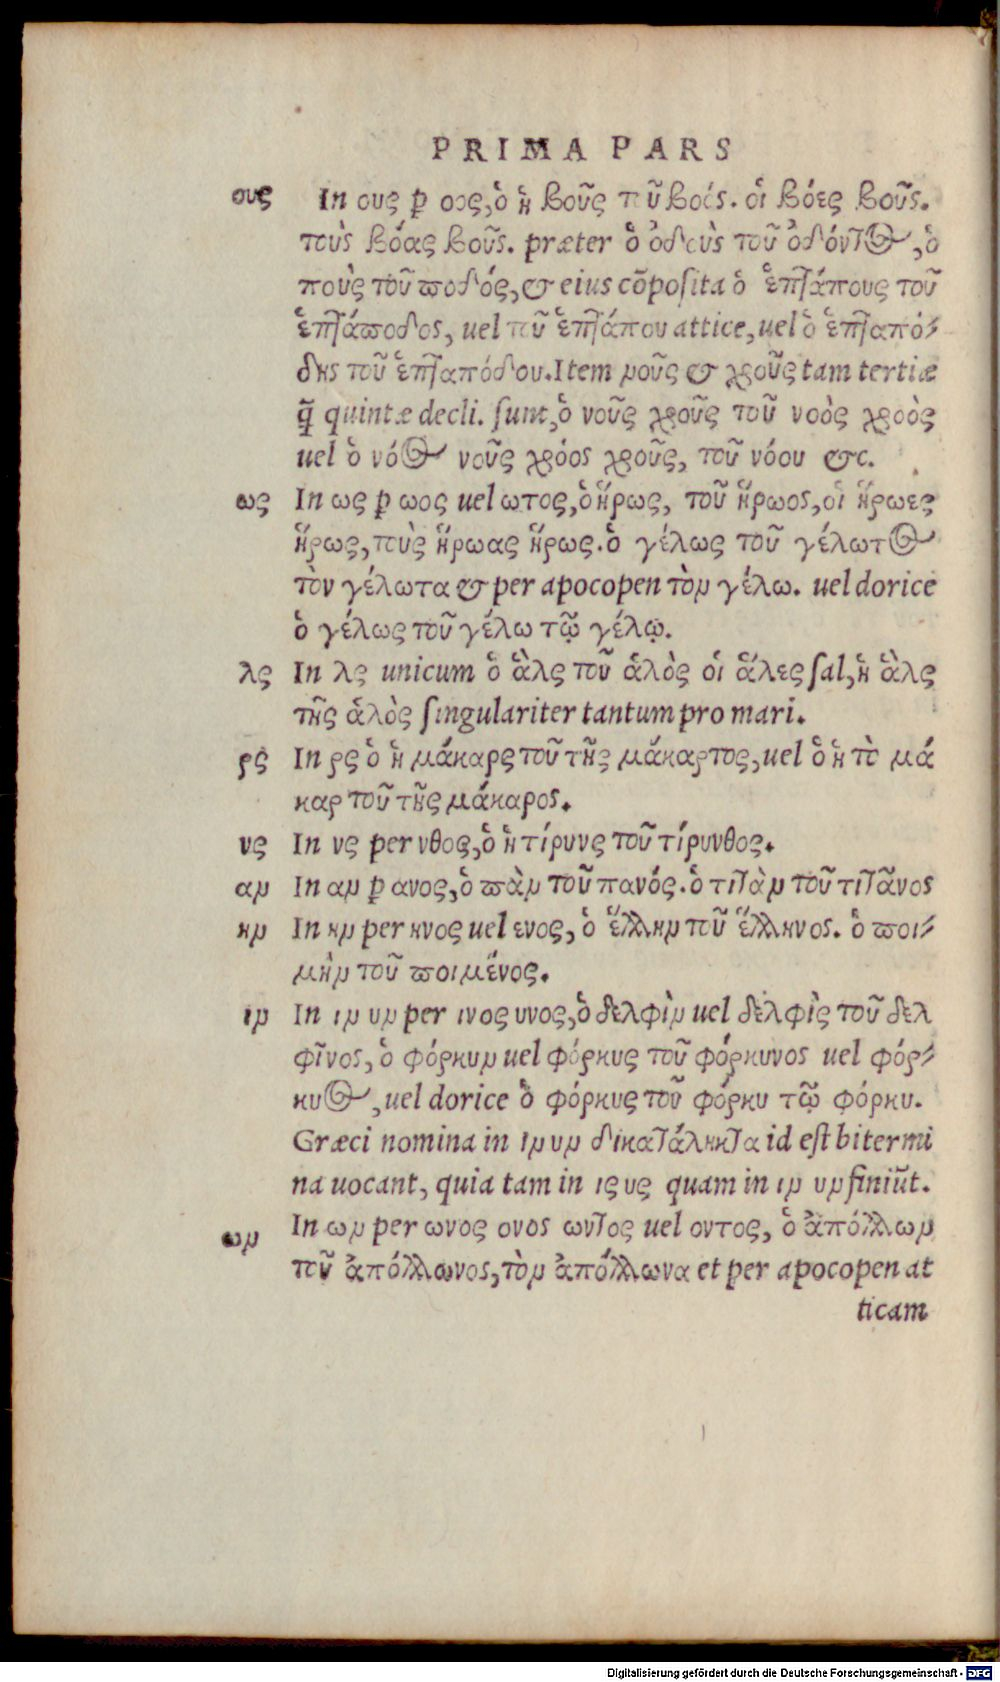 PRIMA PARS
ους In ους ꝑ οος, ὁ ἡ βοῦς τοῦ βοός. οἱ βόες βοῦς.
τοὺς βόας βοῦς. præter ὁ ὀδοὺς τοῦ ὀδόντος, ὁ
ποὺς τοῦ ποδός, & eius cōposita ὁ ἑπτάπους τοῦ
ἑπτάποδος, uel τοῦ ἑπτάπου attice, uel ὁ ἑπταπό-
δης τοῦ ἑπταπόδου. Item νοῦς & χροῦς tam tertiæ
q̃ quintæ decli. sunt, ὁ νοῦς χροῦς τοῦ νοὸς χροὸς
uel ὁ νόος νοῦς χρόος χροῦς, τοῦ νόου &c.
ως In ως ꝑ ωος uel ωτος, ὁ ἥρως, τοῦ ἥρωος, οἱ ἥρωες
ἥρως, τοὺς ἥρωας ἥρως. ὁ γέλως τοῦ γέλωτος
τὸν γέλωτα & per apocopen τὸν γέλω. uel dorice
ὁ γέλως τοῦ γέλω τῷ γέλῳ.
λς In λς unicum ὁ ἃλς τοῦ ἁλὸς οἱ ἅλες sal, ἡ ἃλς
τῆς ἁλὸς singulariter tantum pro mari.
ρς In ρς ὁ ἡ μάκαρς τοῦ τῆς μάκαρτος, uel ὁ ἡ τὸ μά
καρ τοῦ τῆς μάκαρος.
νς In νς per νθος, ὁ ἡ τίρυνς τοῦ τίρυνθος.
αν In αν ꝑ ανος, ὁ πὰν τοῦ πανός. ὁ τιτὰν τοῦ τιτᾶνος
ην In ην per ηνος uel ενος, ὁ ἕλλην τοῦ ἕλληνος. ὁ ποι-
μὴν τοῦ ποιμένος.
ιν In ιν υν per ινος υνος, ὁ δελφὶν uel δελφὶς τοῦ δελ
φῖνος, ὁ φόρκυν uel φόρκυς τοῦ φόρκυνος uel φόρ-
κυος, uel dorice ὁ φόρκυς τοῦ φόρκυ τῷ φόρκυ.
Græci nomina in ιν υν δικατάληκτα id est bitermi
na uocant, quia tam in ις υς quam in ιν υν finiūt.
ων In ων per ωνος ονος ωντος uel οντος, ὁ ἀπόλλων
τοῦ ἀπόλλωνος, τὸν ἀπόλλωνα et per apocopen at
ticam
Digitalisierung gefördert durch die Deutsche Forschungsgemeinschaft - DFG